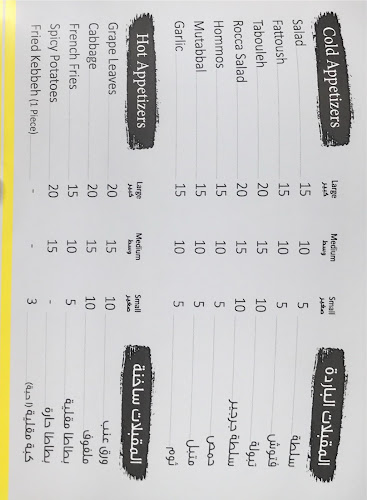 Cold Appetizers Large كبير Medium وسط Small صغير المقبلات الباردة
Salad 15 10 5 سلطة
Fattoush 15 10 5 فتوش
Tabouleh 20 15 10 تبولة
Rocca Salad 20 15 10 سلطة جرجير
Hommos 15 10 5 حمص
Mutabbal 15 10 5 متبل
Garlic 15 10 5 ثوم
Hot Appetizers Large كبير Medium وسط Small صغير المقبلات ساخنة
Grape Leaves 20 15 10 ورق عنب
Cabbage 20 15 10 ملفوف
French Fries 15 10 5 بطاطا مقلية
Spicy Potatoes 20 15 - بطاطا حارة
Fried Kebbeh (1 Piece) - - 3 كبة مقلية (١ حبة)